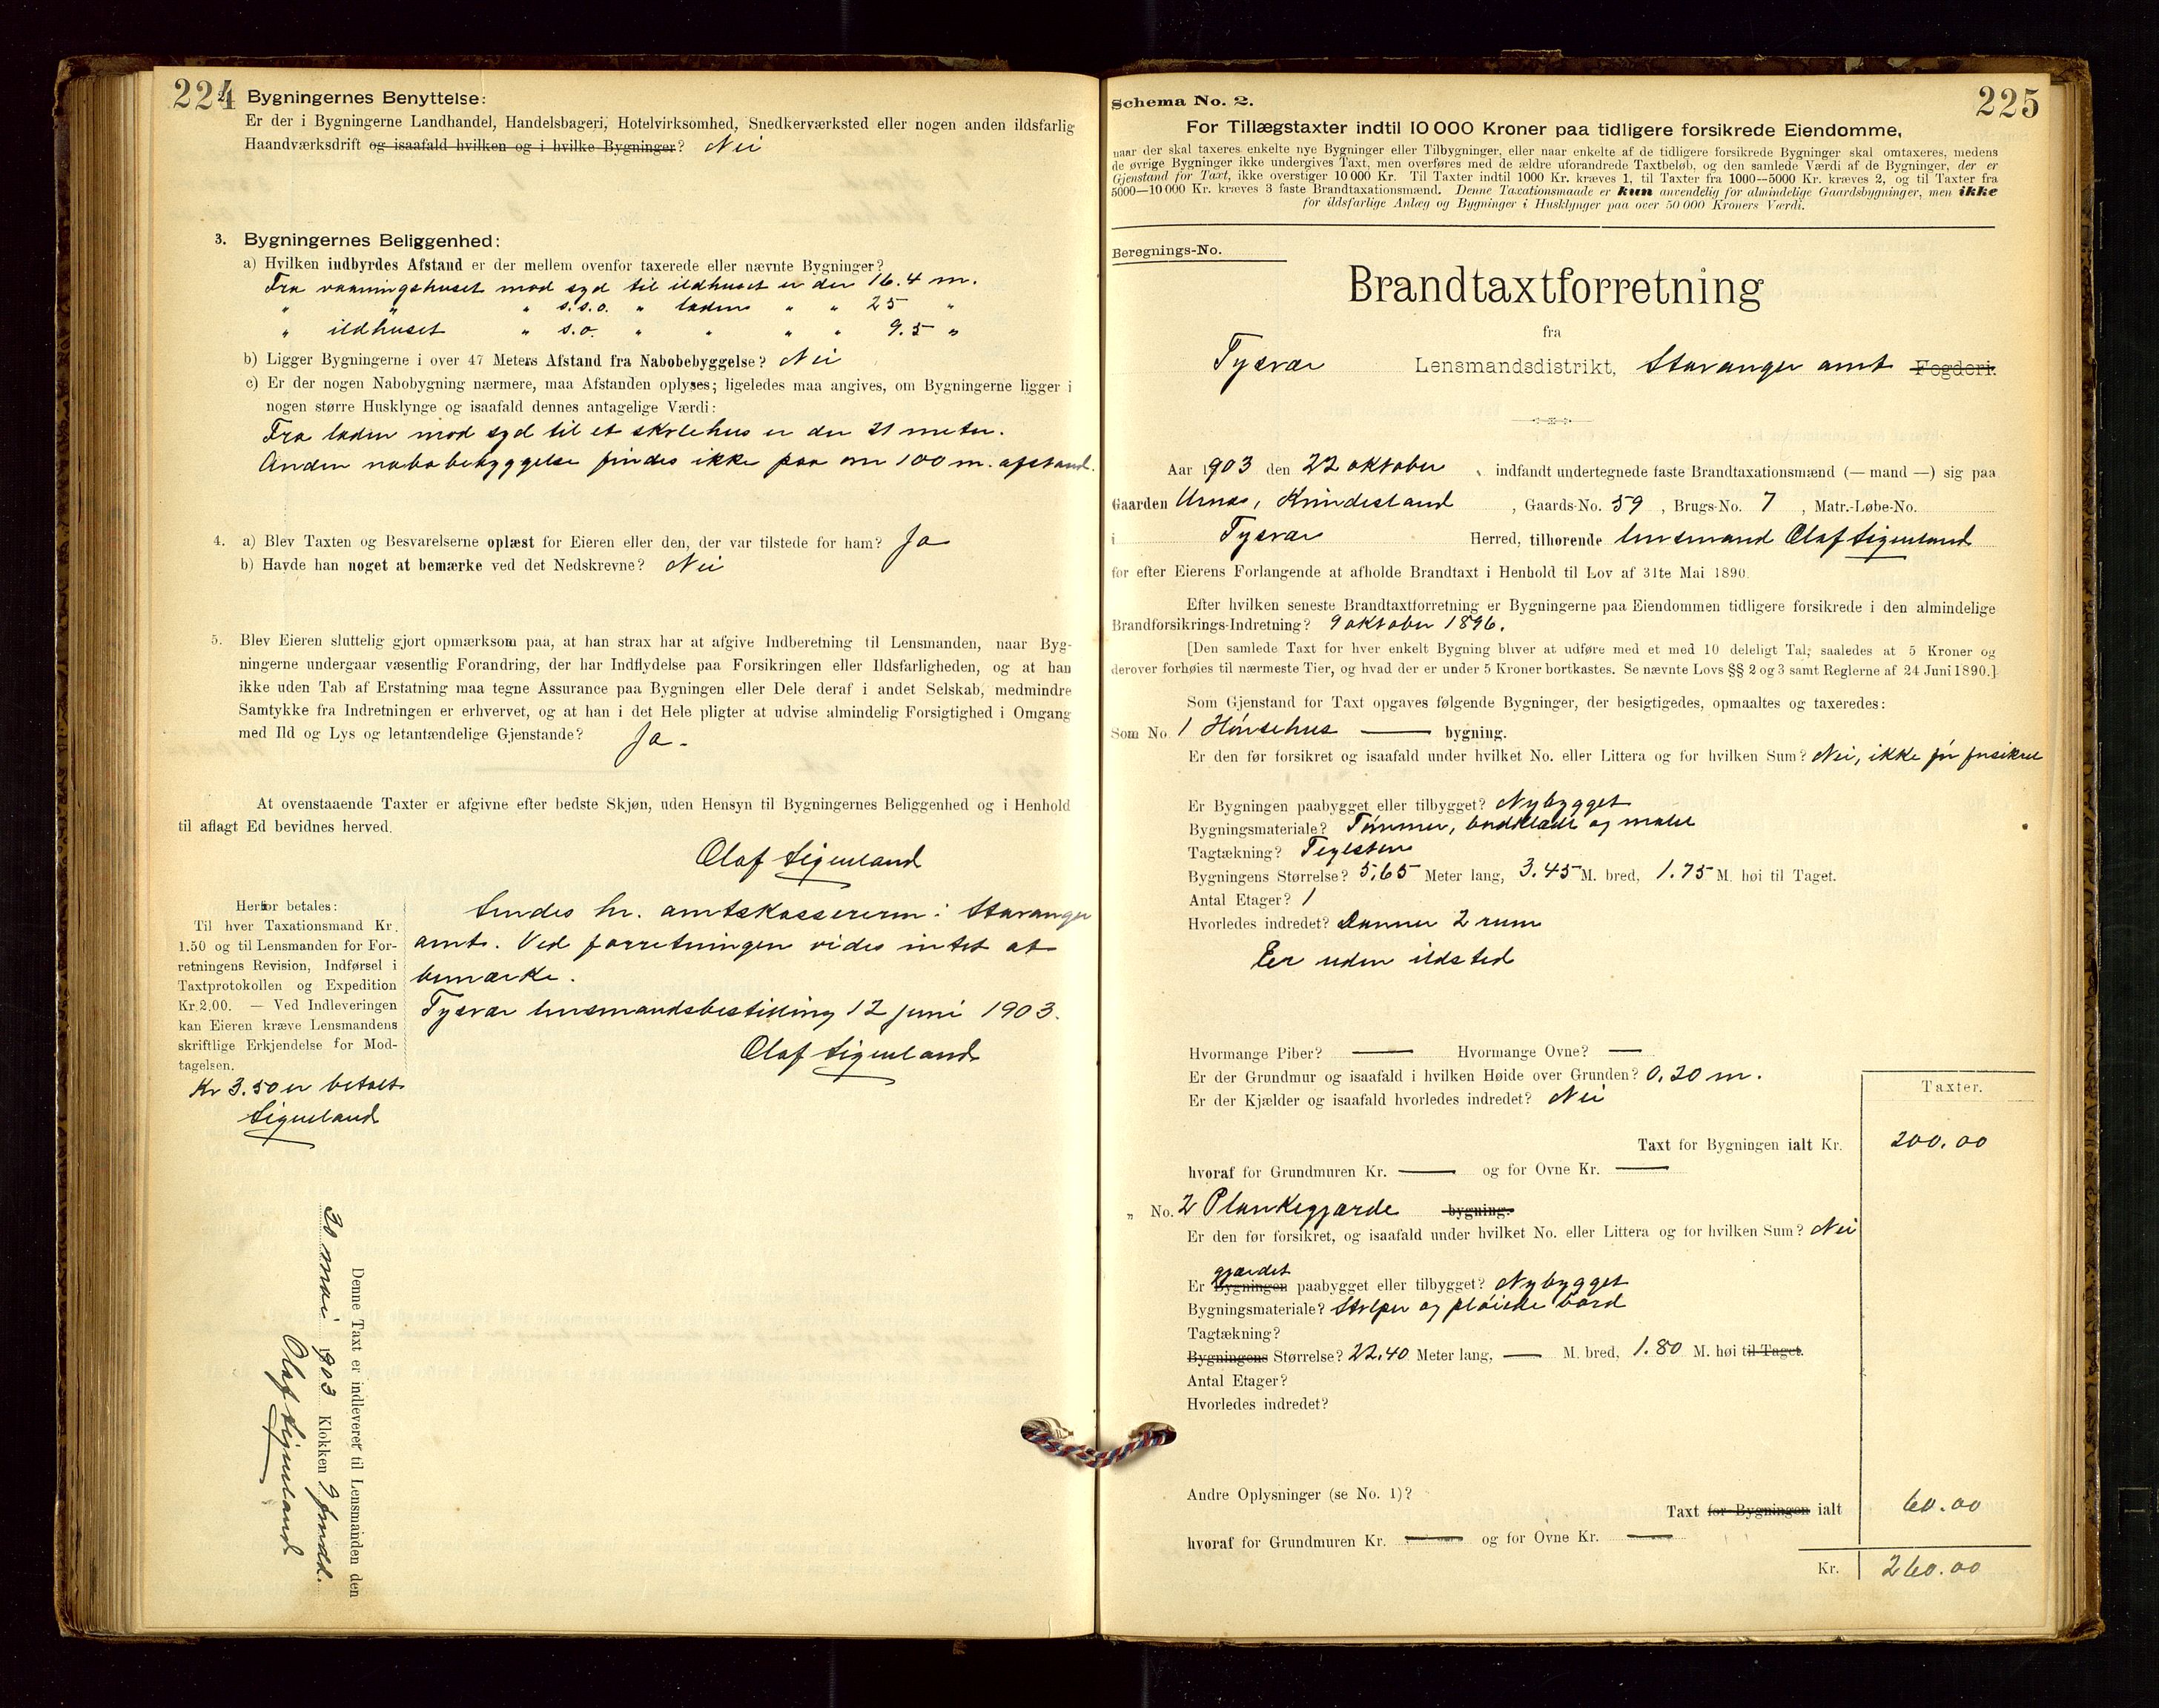 224
2. Bygningernes Benyttelse:
Er der i Bygningerne Landhandel, Handelsbageri, Hotelvirksomhed, Snedkerværksted eller nogen anden ildsfarlig
Haandværksdrift og isaafald hvilken og i hvilke Bygninger? Nei
3. Bygningernes Beliggenhed:
a) Hvilken indbyrdes Afstand er der mellem ovenfor taxerede eller nævnte Bygninger?
Fra vaaningshuset mod syd til ildhuset er der 16.4 m.
" " " s.s.o. " laden " " 25 "
" ildhuset " s.o. " " " " 9.5 "
b) Ligger Bygningerne i over 47 Meters Afstand fra Nabobebyggelse? Nei
c) Er der nogen Nabobygning nærmere, maa Afstanden oplyses; ligeledes maa angives, om Bygningerne ligger i
nogen større Husklynge og isaafald dennes antagelige Værdi:
Fra laden mod syd til et skolehus er der 21 meter.
Anden nabobebyggelse findes ikke paa om 100 m. afstand.
4. a) Blev Taxten og Besvarelserne oplæst for Eieren eller den, der var tilstede for ham? Ja
b) Havde han noget at bemærke ved det Nedskrevne? Nei
5. Blev Eieren sluttelig gjort opmærksom paa, at han strax har at afgive Indberetning til Lensmanden, naar Byg-
ningerne undergaar væsentlig Forandring, der har Indflydelse paa Forsikringen eller Ildsfarligheden, og at han
ikke uden Tab af Erstatning maa tegne Assurance paa Bygningen eller Dele deraf i andet Selskab, medmindre
Samtykke fra Indretningen er erhvervet, og at han i det Hele pligter at udvise almindelig Forsigtighed i Omgang
med Ild og Lys og letantændelige Gjenstande? Ja -
At ovenstaaende Taxter er afgivne efter bedste Skjøn, uden Hensyn til Bygningernes Beliggenhed og i Henhold
til aflagt Ed bevidnes herved.
Olaf Sigenland
Herfor betales:
Til hver Taxationsmand Kr.
1.50 og til Lensmanden for For-
retningens Revision, Indførsel i
Taxtprotokollen og Expedition
Kr. 2.00. — Ved Indleveringen
kan Eieren kræve Lensmandens
skriftlige Erkjendelse for Mod-
tagelsen.
Kr 3.50 er betalt
Sigenland
Sendes hr. amtskassereren i Stavanger
amt. Ved forretningen vides intet at
bemærke.
Tysvær lensmandsbestilling 12 juni 1903.
Olaf Sigenland
Denne Taxt er indleveret til Lensmanden den
30 mai 1903 Klokken 9 formdt.
Olaf Sigenland
225
Schema No. 2.
For Tillægstaxter indtil 10 000 Kroner paa tidligere forsikrede Eiendomme,
naar der skal taxeres enkelte nye Bygninger eller Tilbygninger, eller naar enkelte af de tidligere forsikrede Bygninger skal omtaxeres, medens
de øvrige Bygninger ikke undergives Taxt, men overføres med de ældre uforandrede Taxtbeløb, og den samlede Værdi af de Bygninger, der er
Gjenstand for Taxt, ikke overstiger 10 000 Kr. Til Taxter indtil 1000 Kr. kræves 1, til Taxter fra 1000—5000 Kr. kræves 2, og til Taxter fra
5000—10 000 Kr. kræves 3 faste Brandtaxationsmænd. Denne Taxationsmaade er kun anvendelig for almindelige Gaardsbygninger, men ikke
for ildsfarlige Anlæg og Bygninger i Husklynger paa over 50 000 Kroners Værdi.
Beregnings-No.
Brandtaxtforretning
fra
Tysvær Lensmandsdistrikt, Stavanger amt Fogderi.
Aar 1903 den 22 oktober, indfandt undertegnede faste Brandtaxationsmænd (— mand —) sig paa
Gaarden Urnæs, Krindesland, Gaards-No. 59, Brugs-No. 7, Matr.-Løbe-No.
i Tysvær Herred, tilhørende lensmand Olaf Sigenland
for efter Eierens Forlangende at afholde Brandtaxt i Henhold til Lov af 31te Mai 1890.
Efter hvilken seneste Brandtaxtforretning er Bygningerne paa Eiendommen tidligere forsikrede i den almindelige
Brandforsikrings-Indretning? 9 oktober 1896.
[Den samlede Taxt for hver enkelt Bygning bliver at udføre med et med 10 deleligt Tal; saaledes at 5 Kroner og
derover forhøies til nærmeste Tier, og hvad der er under 5 Kroner bortkastes. Se nævnte Lovs §§ 2 og 3 samt Reglerne af 24 Juni 1890.]
Som Gjenstand for Taxt opgaves følgende Bygninger, der besigtigedes, opmaaltes og taxeredes:
Som No. 1 Hønsehus — bygning.
Er den før forsikret og isaafald under hvilket No. eller Littera og for hvilken Sum? Nei, ikke før forsikret
Er Bygningen paabygget eller tilbygget? Nybygget
Bygningsmateriale? Tømmer, bordklædt og malet
Tagtækning? Teglsten
Bygningens Størrelse? 5,65 Meter lang, 3.45 M. bred, 1.75 M. høi til Taget.
Antal Etager? 1
Hvorledes indredet? Danner 2 rum
Er uden ildsted
Hvormange Piber? — Hvormange Ovne? —
Er der Grundmur og isaafald i hvilken Høide over Grunden? 0.20 m.
Er der Kjælder og isaafald hvorledes indredet? Nei
Taxter.
Taxt for Bygningen ialt Kr. 200.00
hvoraf for Grundmuren Kr. — og for Ovne Kr. —
„ No. 2 Plankegjærde bygning.
Er den før forsikret, og isaafald under hvilket No. eller Littera og for hvilken Sum? Nei
gjærdet
Er Bygningen paabygget eller tilbygget? Nybygget
Bygningsmateriale? Stolper og pløiede bord
Tagtækning?
Bygningens Størrelse? 22.40 Meter lang, — M. bred, 1.80 M. høi til Taget.
Antal Etager?
Hvorledes indredet?
Andre Oplysninger (se No. 1)?
Taxt for Bygningen ialt 60.00
hvoraf for Grundmuren Kr. — og for Ovne Kr. —
Kr. 260.00